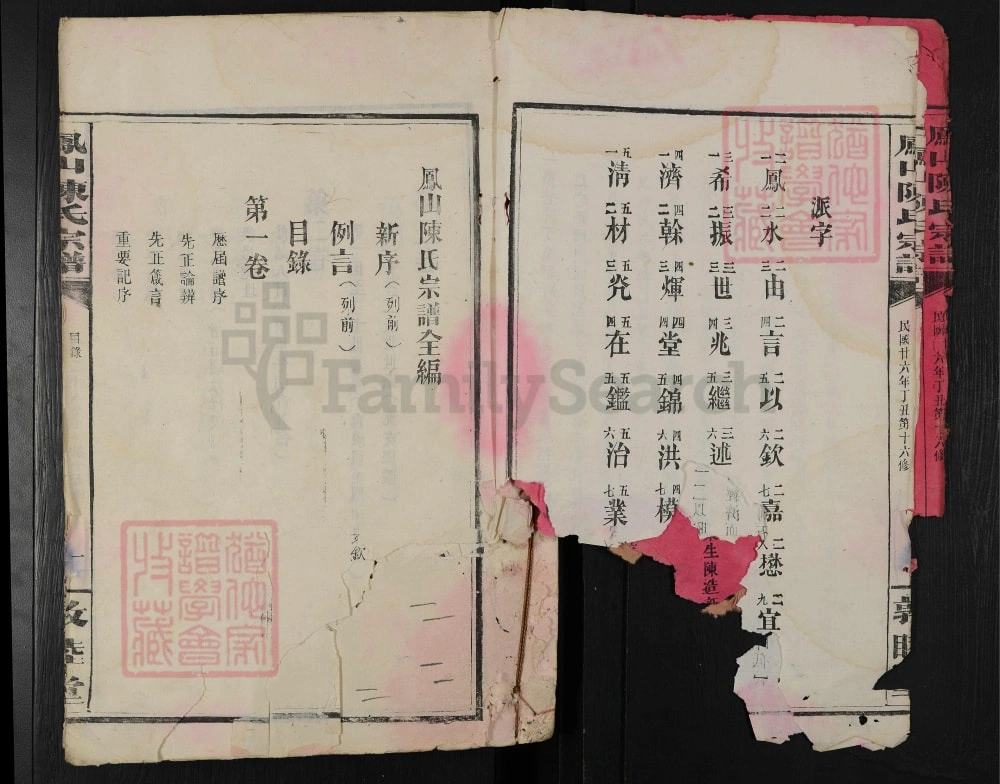 鳳山陳氏宗譜
民國廿六年丁丑第十六修
派字
二一鳳 二二水 二三由 二四言 二五以 二六欽 二七嘉 二八懋 二九宜
三一希 三二振 三三世 三四兆 三五繼 三六述
四一濟 四二幹 四三煇 四四堂 四五錦 四六洪 四七模
五一淸 五二材 五三 五四在 五五鑑 五六治 五七業
生陳造
鳳山陳氏宗譜全編
新序（列前）
例言（列前）
目錄
第一卷
歷屆譜序
先正論辨
先正箴言
重要記序
鳳山陳氏宗譜
目錄
一
敦睦堂
譜學會
收藏
FamilySearch